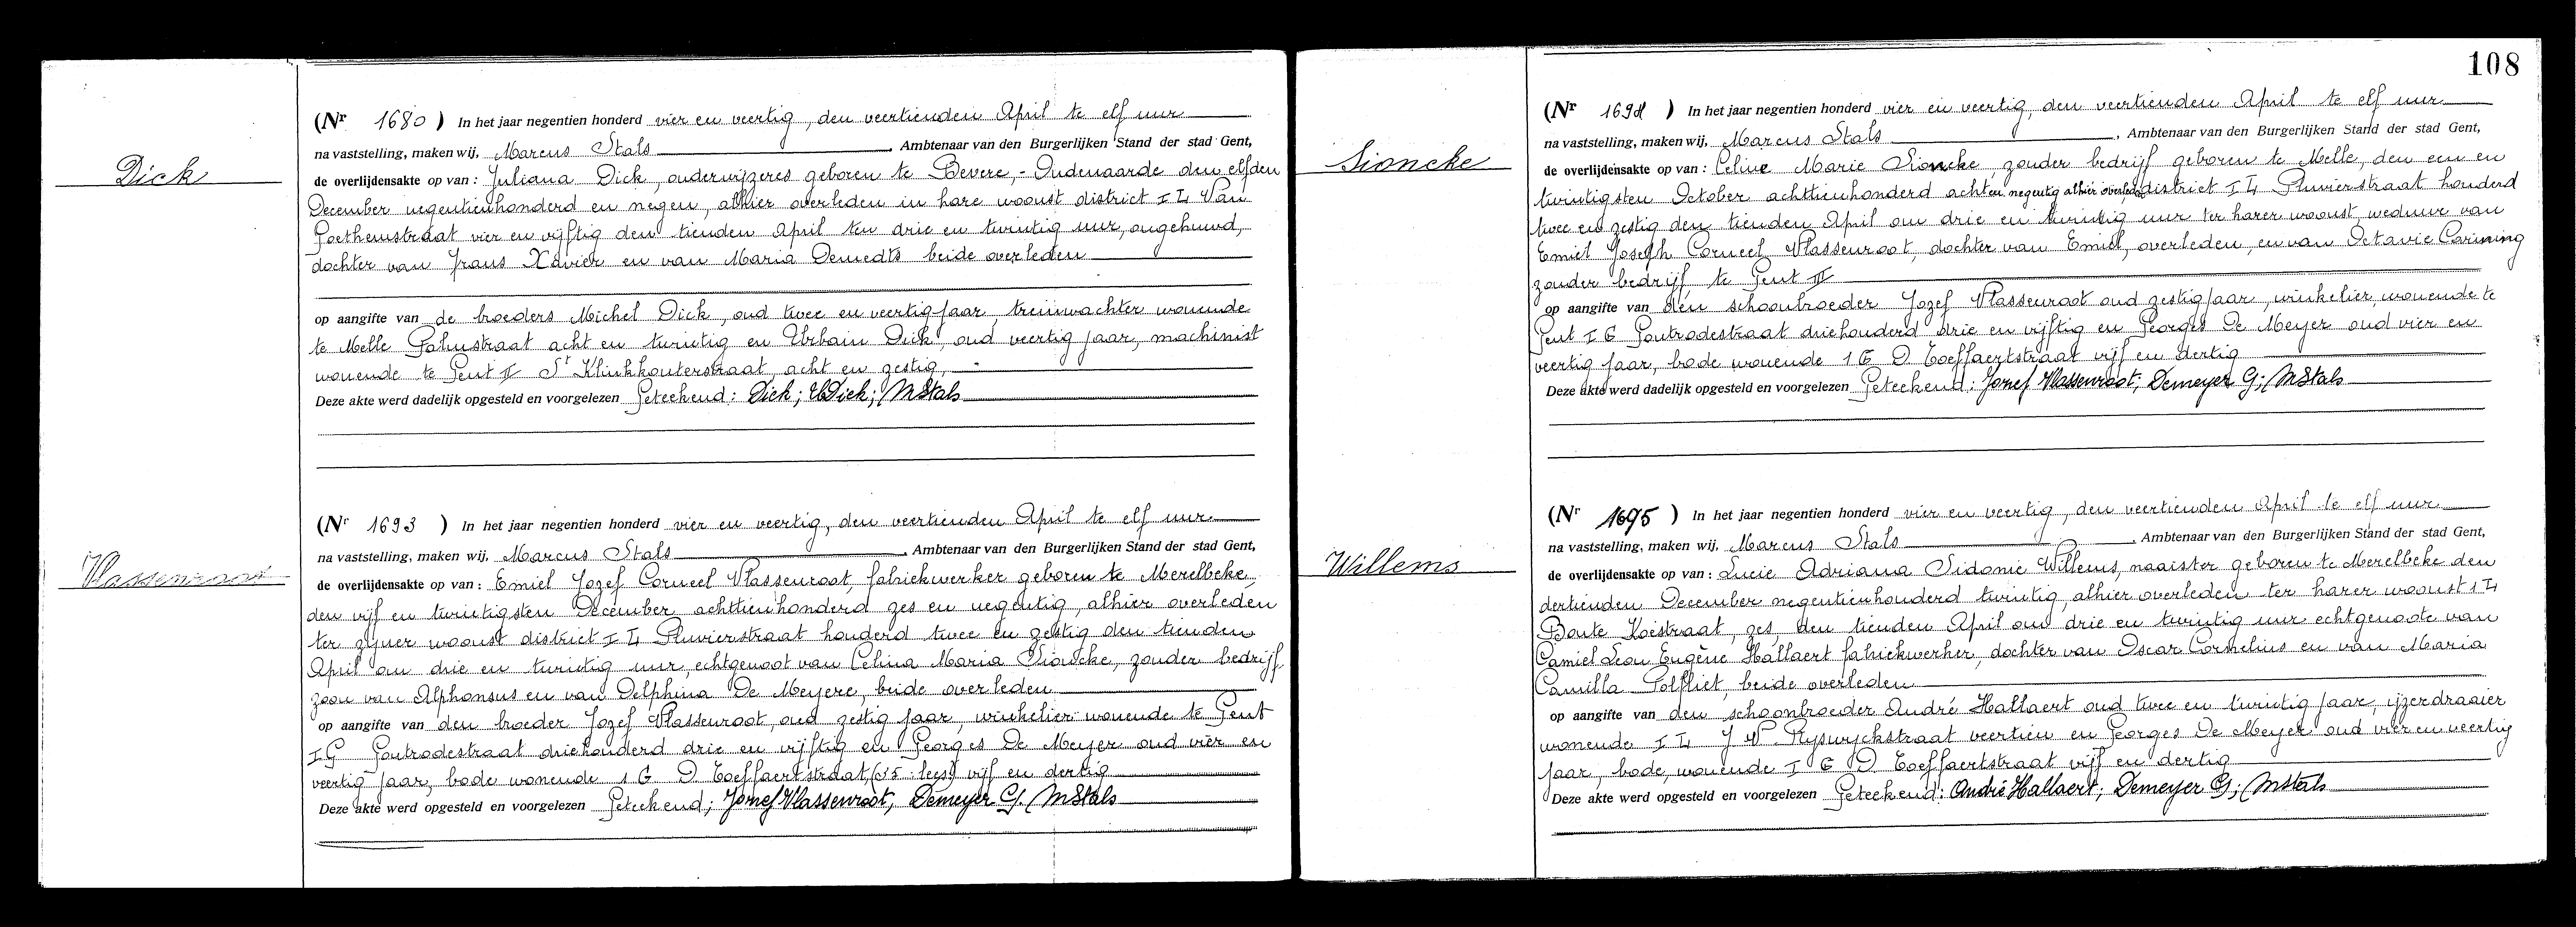 Dick
(Nr 1680) In het jaar negentien honderd vier en veertig, den veertienden April te elf uur
na vaststelling, maken wij, Marcus Stals, Ambtenaar van den Burgerlijken Stand der stad Gent,
de overlijdensakte op van: Juliana Dick, onderwijzeres geboren te Bevere,- Oudenaarde den elfden
December negentienhonderd en negen, alhier overleden in hare woonst district I L Van
Goethemstraat vier en vijftig den tienden April ten drie en twintig uur, ongehuwd,
dochter van Frans Xavier en van Maria Demedts beide overleden
op aangifte van de broeders Michel Dick, oud twee en veertig jaar, treinwachter wonende
te Melle straat acht en twintig en Urbain Dick, oud veertig jaar, machinist
wonende te Gent II St Klinkkouterstraat, acht en zestig,
Deze akte werd dadelijk opgesteld en voorgelezen Geteekend: Dick; UDick; MStals
Vlassenroot
(Nr 1693) In het jaar negentien honderd vier en veertig, den veertienden April te elf uur
na vaststelling, maken wij, Marcus Stals, Ambtenaar van den Burgerlijken Stand der stad Gent,
de overlijdensakte op van: Emiel Jozef Corneel Vlassenroot, fabriekwerker geboren te Merelbeke,
den vijf en twintigsten December achttienhonderd zes en negentig, alhier overleden
ter zijner woonst district I L Pluvierstraat honderd twee en zestig den tienden
April om drie en twintig uur, echtgenoot van Celina Maria Sioncke, zonder bedrijf
zoon van Alphonsus en van Delphina De Meyere, beide overleden
op aangifte van den broeder Jozef Vlassenroot, oud zestig jaar, winkelier wonende te Gent
I G Gontrodestraat driehonderd drie en vijftig en Georges De Meyer oud vier en
veertig jaar, bode wonende 1 G D Toeffaertstraat, vijf en dertig
Deze akte werd opgesteld en voorgelezen Geteekend; Jozef Vlassenroot, Demeyer G. MStals
108
Sioncke
(Nr 1694) In het jaar negentien honderd vier en veertig, den veertienden April te elf uur
na vaststelling, maken wij, Marcus Stals, Ambtenaar van den Burgerlijken Stand der stad Gent,
de overlijdensakte op van: Celine Marie Sioncke, zonder bedrijf geboren te Melle, den een en
twintigsten October achttienhonderd acht en negentig alhier overleden district I L Pluvierstraat honderd
twee en zestig den tienden April om drie en twintig uur ter harer woonst, weduwe van
Emiel Joseph Corneel Vlassenroot, dochter van Emiel, overleden, en van Octavie
zonder bedrijf, te Gent II
op aangifte van den schoonbroeder Jozef Vlassenroot oud zestig jaar, winkelier, wonende te
Gent I G Gontrodestraat driehonderd drie en vijftig en Georges De Meyer oud vier en
veertig jaar, bode wonende 1 G D Toeffaertstraat vijf en dertig
Deze akte werd dadelijk opgesteld en voorgelezen Geteekend: Jozef Vlassenroot; Demeyer G; MStals
Willems
(Nr 1695) In het jaar negentien honderd vier en veertig, den veertienden April te elf uur
na vaststelling, maken wij, Marcus Stals, Ambtenaar van den Burgerlijken Stand der stad Gent,
de overlijdensakte op van: Lucie Adriana Sidonie Willems, naaister geboren te Merelbeke den
dertienden December negentienhonderd twintig, alhier overleden ter harer woonst 1 L
Bonte Koestraat, zes, den tienden April om drie en twintig uur echtgenoote van
Camiel Leon Eugène Hallaert fabriekwerker, dochter van Oscar Cornelius en van Maria
Camilla Polfliet, beide overleden
op aangifte van den schoonbroeder André Hallaert oud twee en twintig jaar, ijzerdraaier
wonende I L J V Rijswyckstraat veertien en Georges De Meyer oud vier en veertig
jaar, bode, wonende I G D Toeffaertstraat vijf en dertig
Deze akte werd opgesteld en voorgelezen Geteekend: André Hallaert; Demeyer G; MStals